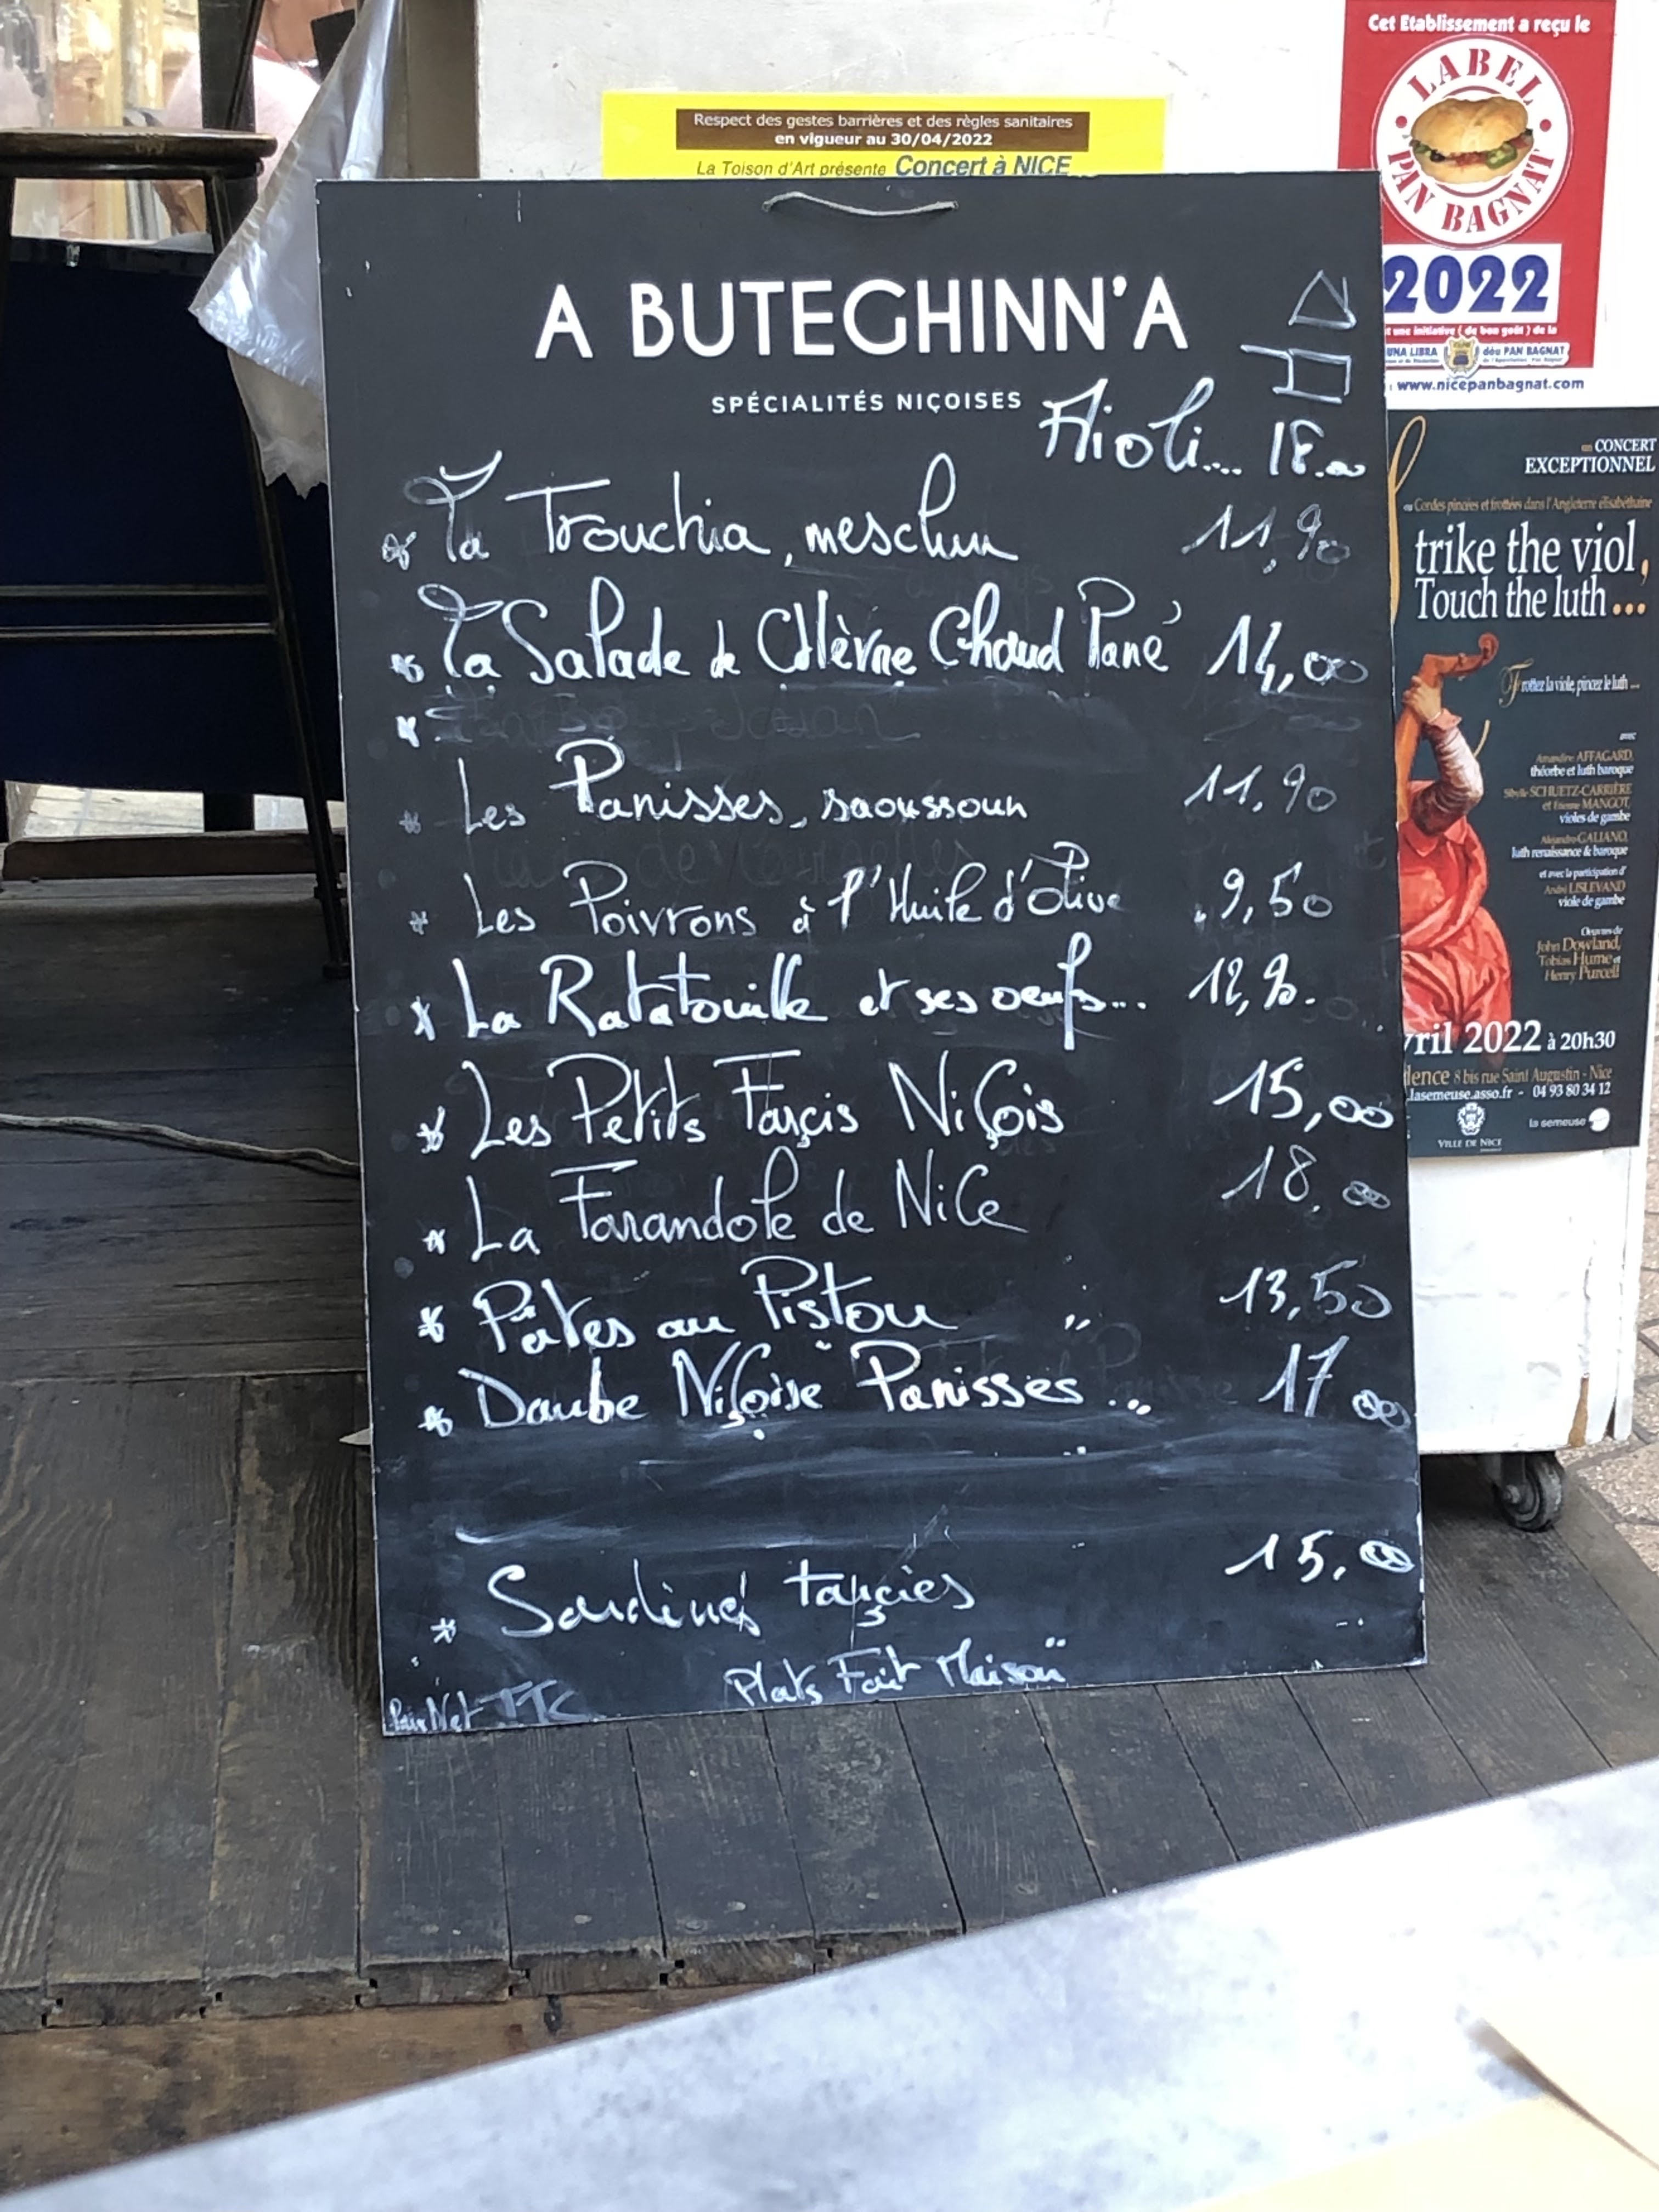 Cet Etablissement a reçu le
LABEL
PAN BAGNAT
2022
une initiative ( de bon goût ) de la
UNA LIBRA dóu PAN BAGNAT
www.nicepanbagnat.com
Respect des gestes barrières et des règles sanitaires
en vigueur au 30/04/2022
La Toison d'Art présente Concert à NICE
A BUTEGHINN'A
SPÉCIALITÉS NIÇOISES
Aioli.... 18.00
* La Trouchia, mesclun 11,90
* La Salade de Chèvre Chaud Pané 14,00
*
* Les Panisses, saoussoun 11,90
* Les Poivrons à l'Huile d'Olive 9,50
* La Ratatouille et ses oeufs... 12,90.
* Les Petits Farçis Niçois 15,00
* La Farandole de Nice 18.00
* Pâtes au Pistou 13,50
* Daube Niçoise Panisses ... 17 00
* Sardines farçies 15,00
Plats Fait Maison
Prix Net TTC
un CONCERT
EXCEPTIONNEL
ou Cordes pincées et frottées dans l'Angleterre elisabéthaine
trike the viol,
Touch the luth...
Frottez la viole, pincez le luth ...
avec
Amandine AFFAGARD,
théorbe et luth baroque
Sibylle SCHUETZ-CARRIÈRE
et Etienne MANGOT,
violes de gambe
Alejandro GALIANO,
luth renaissance & baroque
et avec la participation d'
André LISLEVAND
viole de gambe
Oeuvres de
John Dowland,
Tobias Hume et
Henry Purcell
vril 2022 à 20h30
dence 8 bis rue Saint Augustin - Nice
.lasemeuse.asso.fr - 04 93 80 34 12
VILLE DE NICE
la semeuse